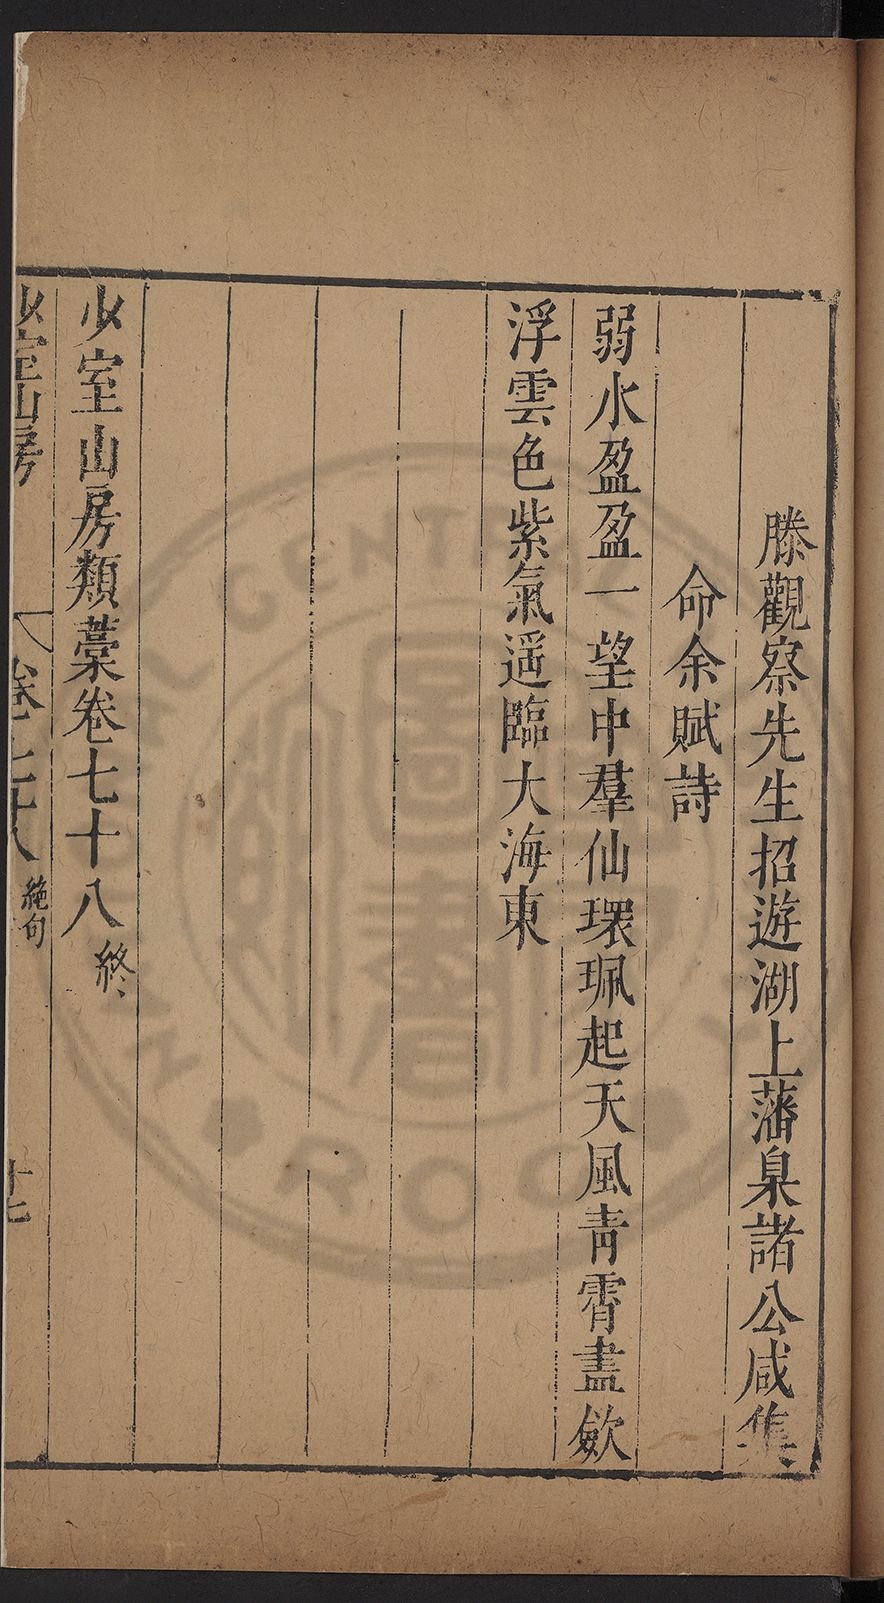 滕觀察先生招遊湖上藩臬諸公咸集
命余賦詩
弱水盈盈一望中羣仙環珮起天風青霄盡歛
浮雲色紫氣遥臨大海東
少室山房類藁卷七十八終
少室山房 卷七十八 絶句 十七